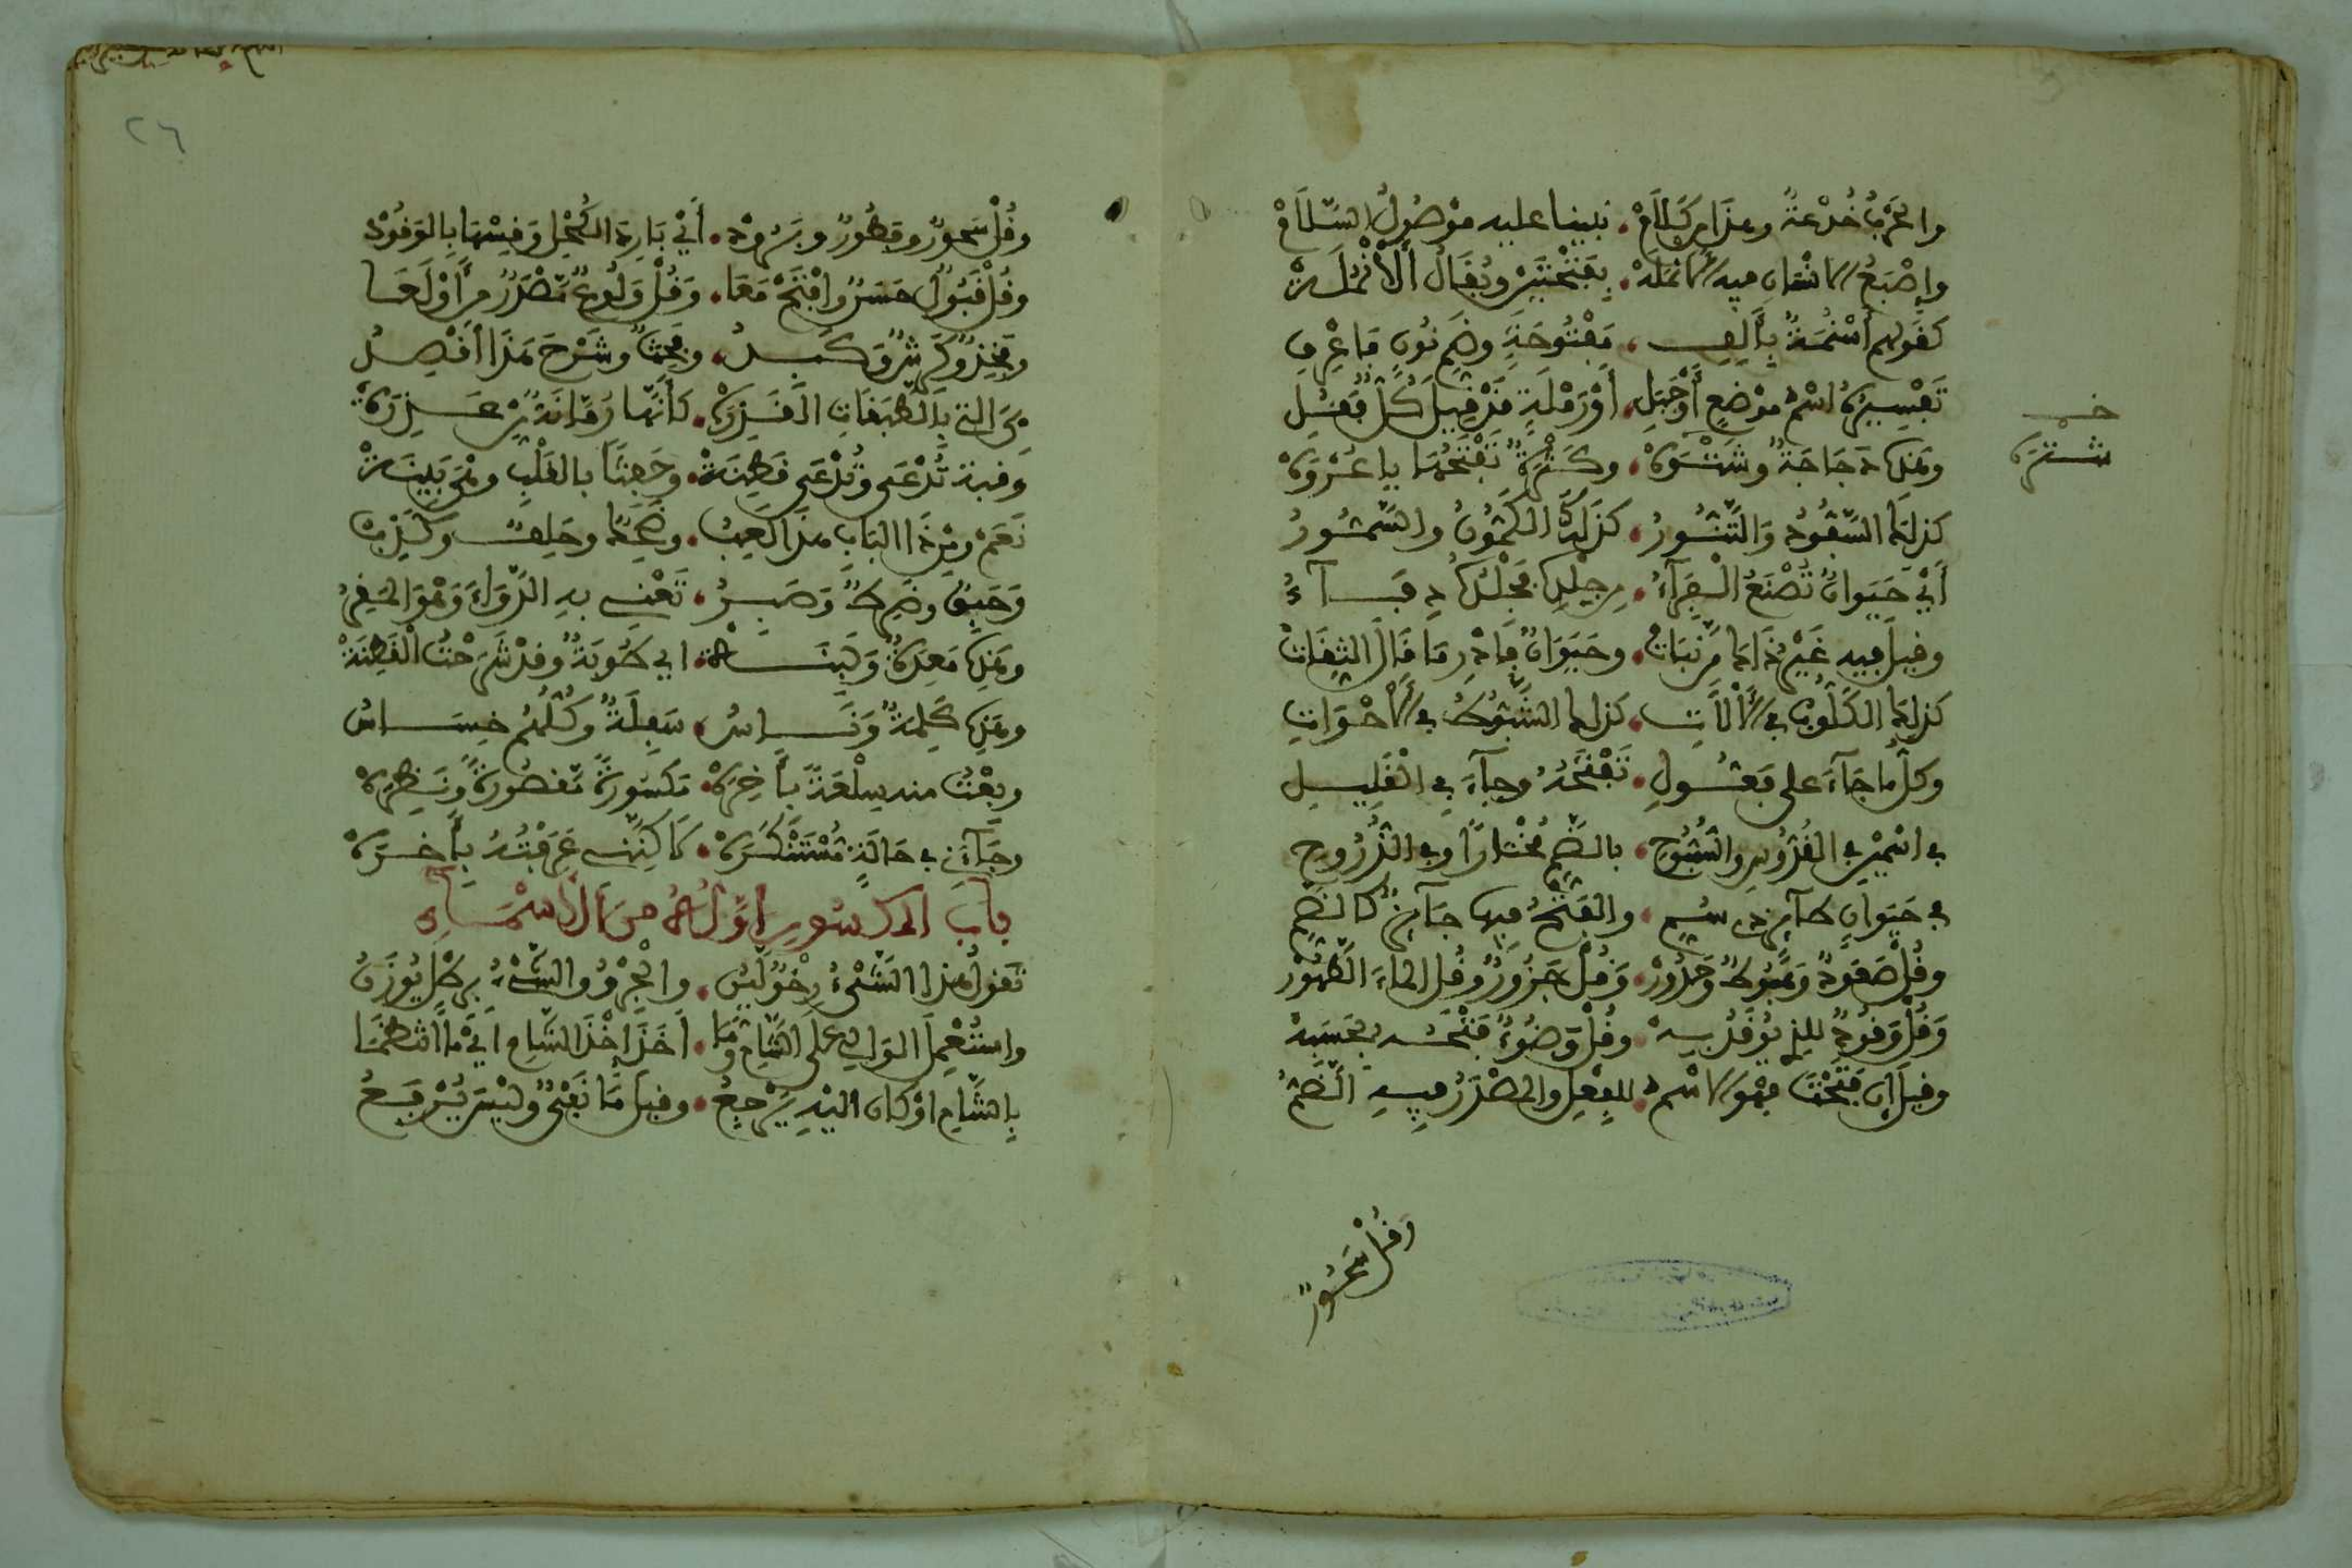 والحرب خدعة وهذا من كلام • نبينا عليه موصول السلام
وإصبع الانسان فيه الانمله • بفتحتين ويقال ألأنملة
كقولهم أسنمة بألف • مفتوحة وضم نون فاعرف
تفسيره اسم موضع أو جبل • أو رملة قد قيل كل فقل
وهذه دجاجة وشتوه • وكثرة تفتحها يا عروه
خـ
شتوه
كذلك السفود والتنور • كذلك الكمون والسمور
أي حيوان تصنع الفراء • من جلده
وقيل فيه غير ذا من نبات • وحيوان فادر ما قال الثقات
كذلك الكلوب في الألات • كذلك الشبوط في الأحوات
وكل ما جاء على فعول • تفتحه وجاء في القليل
في اسمين في القدوس والسبوح • بالضم مختارا وفي الذروح
في حيوان طائر ذي سم • والفتح فيها جائز كالضم
وقل صعود وهبوط وحدور • وقل جزور وقل الماء الطهور
وقل وقود للذي يوقد به • وقل وضوء فتحه بحسبه
وقيل إن فتحت فهو الاسم • للفعل والمصدر فيه الضم
وقل سحور
٢٦
وقل سحور وفطور وبرود • أي بارد الكحل وقسها بالوقود
وقل قبول حسن وافتح معا • وقل ولوع مصدر من أولعا
وفخذ وكرش وكبد • وفحث وشرح هذا أقصد
هي التي بالطبقات القذره • كأنها رمانة
وقبة تدعى وتدعى فطنة • وجمعنا بالقلب وهي بينة
نعم ومن ذا الباب هذا لعب • وضحك وحلف وكذب
وحبق وضرط وصبر • تعني به الدواء وهو المقر
وهذه معدة ولبنه • اي طوبة وقد شرحت الفطنة
وهذه كلمة وناس • سفلة وكلهم خساس
وبعت منه سلعة بأخره • مكسورة مقصورة ونظره
وجاءني في حالة مستنكره • لاكنني عرفته بأخره
باب المكسور أوله من الأسماء
تقول هذا الشيء رخو ليس • والجرو والشيء برطل يوزن
واستعمل الوالي على الشام وما • أخذ إخذ الشام أي ما انتظما
بالشام أو كان اليه يرجع • وقيل ما نفتح وليس يرفع